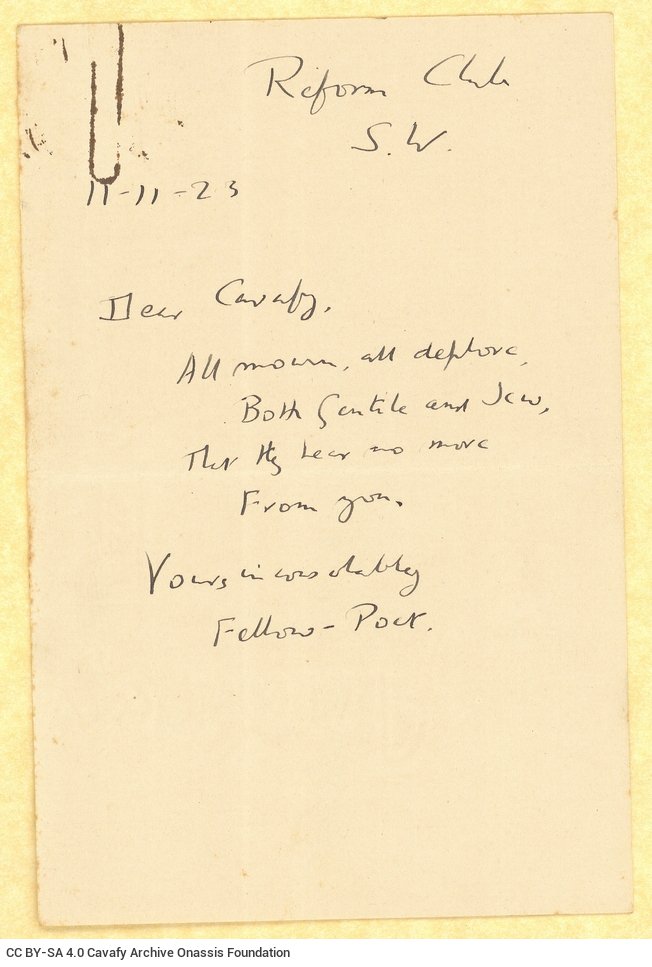 Reform Club
S.W.
11-11-23
Dear Cavafy,
All mourn, all deplore,
Both Gentile and Jew,
That they hear no more
From you.
Yours inconsolably
Fellow-Poet.
CC BY-SA 4.0 Cavafy Archive Onassis Foundation